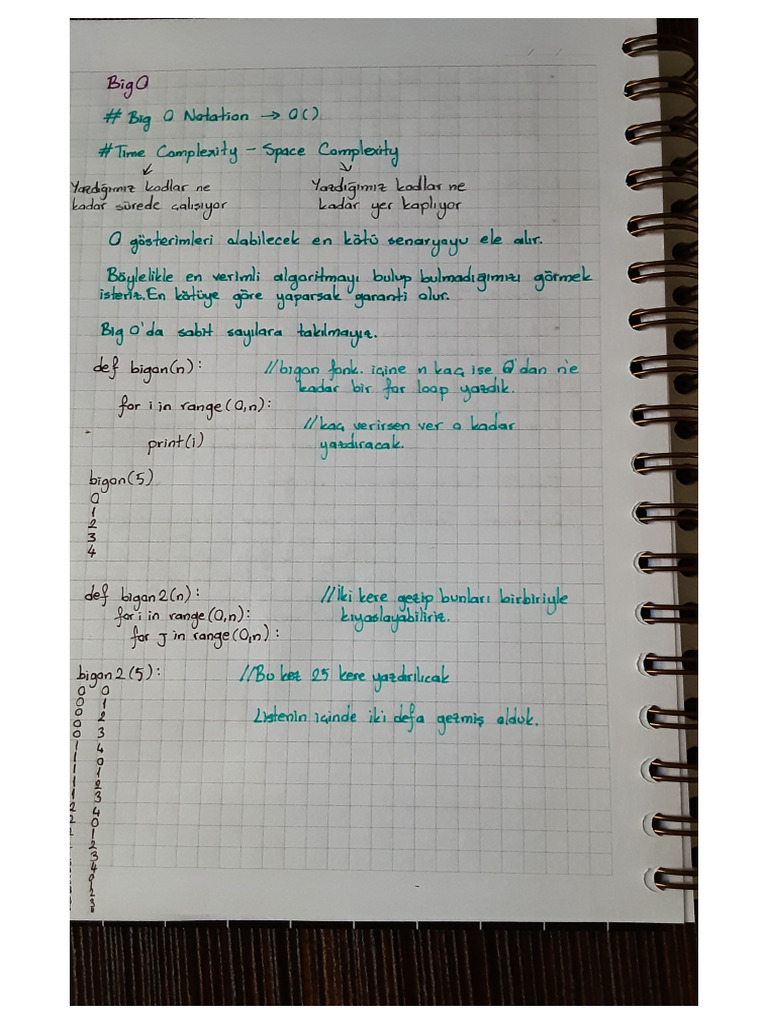 BigO
# Big O Notation → O()
# Time Complexity - Space Complexity
Yazdığımız kodlar ne
kadar sürede çalışıyor
Yazdığımız kodlar ne
kadar yer kaplıyor
O gösterimleri olabilecek en kötü senaryayu ele alır.
Böylelikle en verimli algoritmayı bulup bulmadığımızı görmek
isteriz. En kötüye göre yaparsak garanti olur.
Big O'da sabit sayılara takılmayız.
def bigon(n): //bigon fonk. içine n kaç ise 0'dan n'e
kadar bir for loop yazdık.
for i in range(0,n):
//kaç verirsen ver o kadar
print(i) yazdıracak.
bigon(5)
0
1
2
3
4
def bigon2(n): //İki kere gezip bunları birbiriyle
for i in range(0,n): kıyaslayabiliriz.
for j in range(0,n):
bigon2(5): //Bu kez 25 kere yazdırılıcak
0 0
0 1
0 2
0 3
0 4
1 0
1 1
1 2
1 3
1 4
2 0
2 1
2
3
4
0
1
2
3
Listenin içinde iki defa gezmiş olduk.